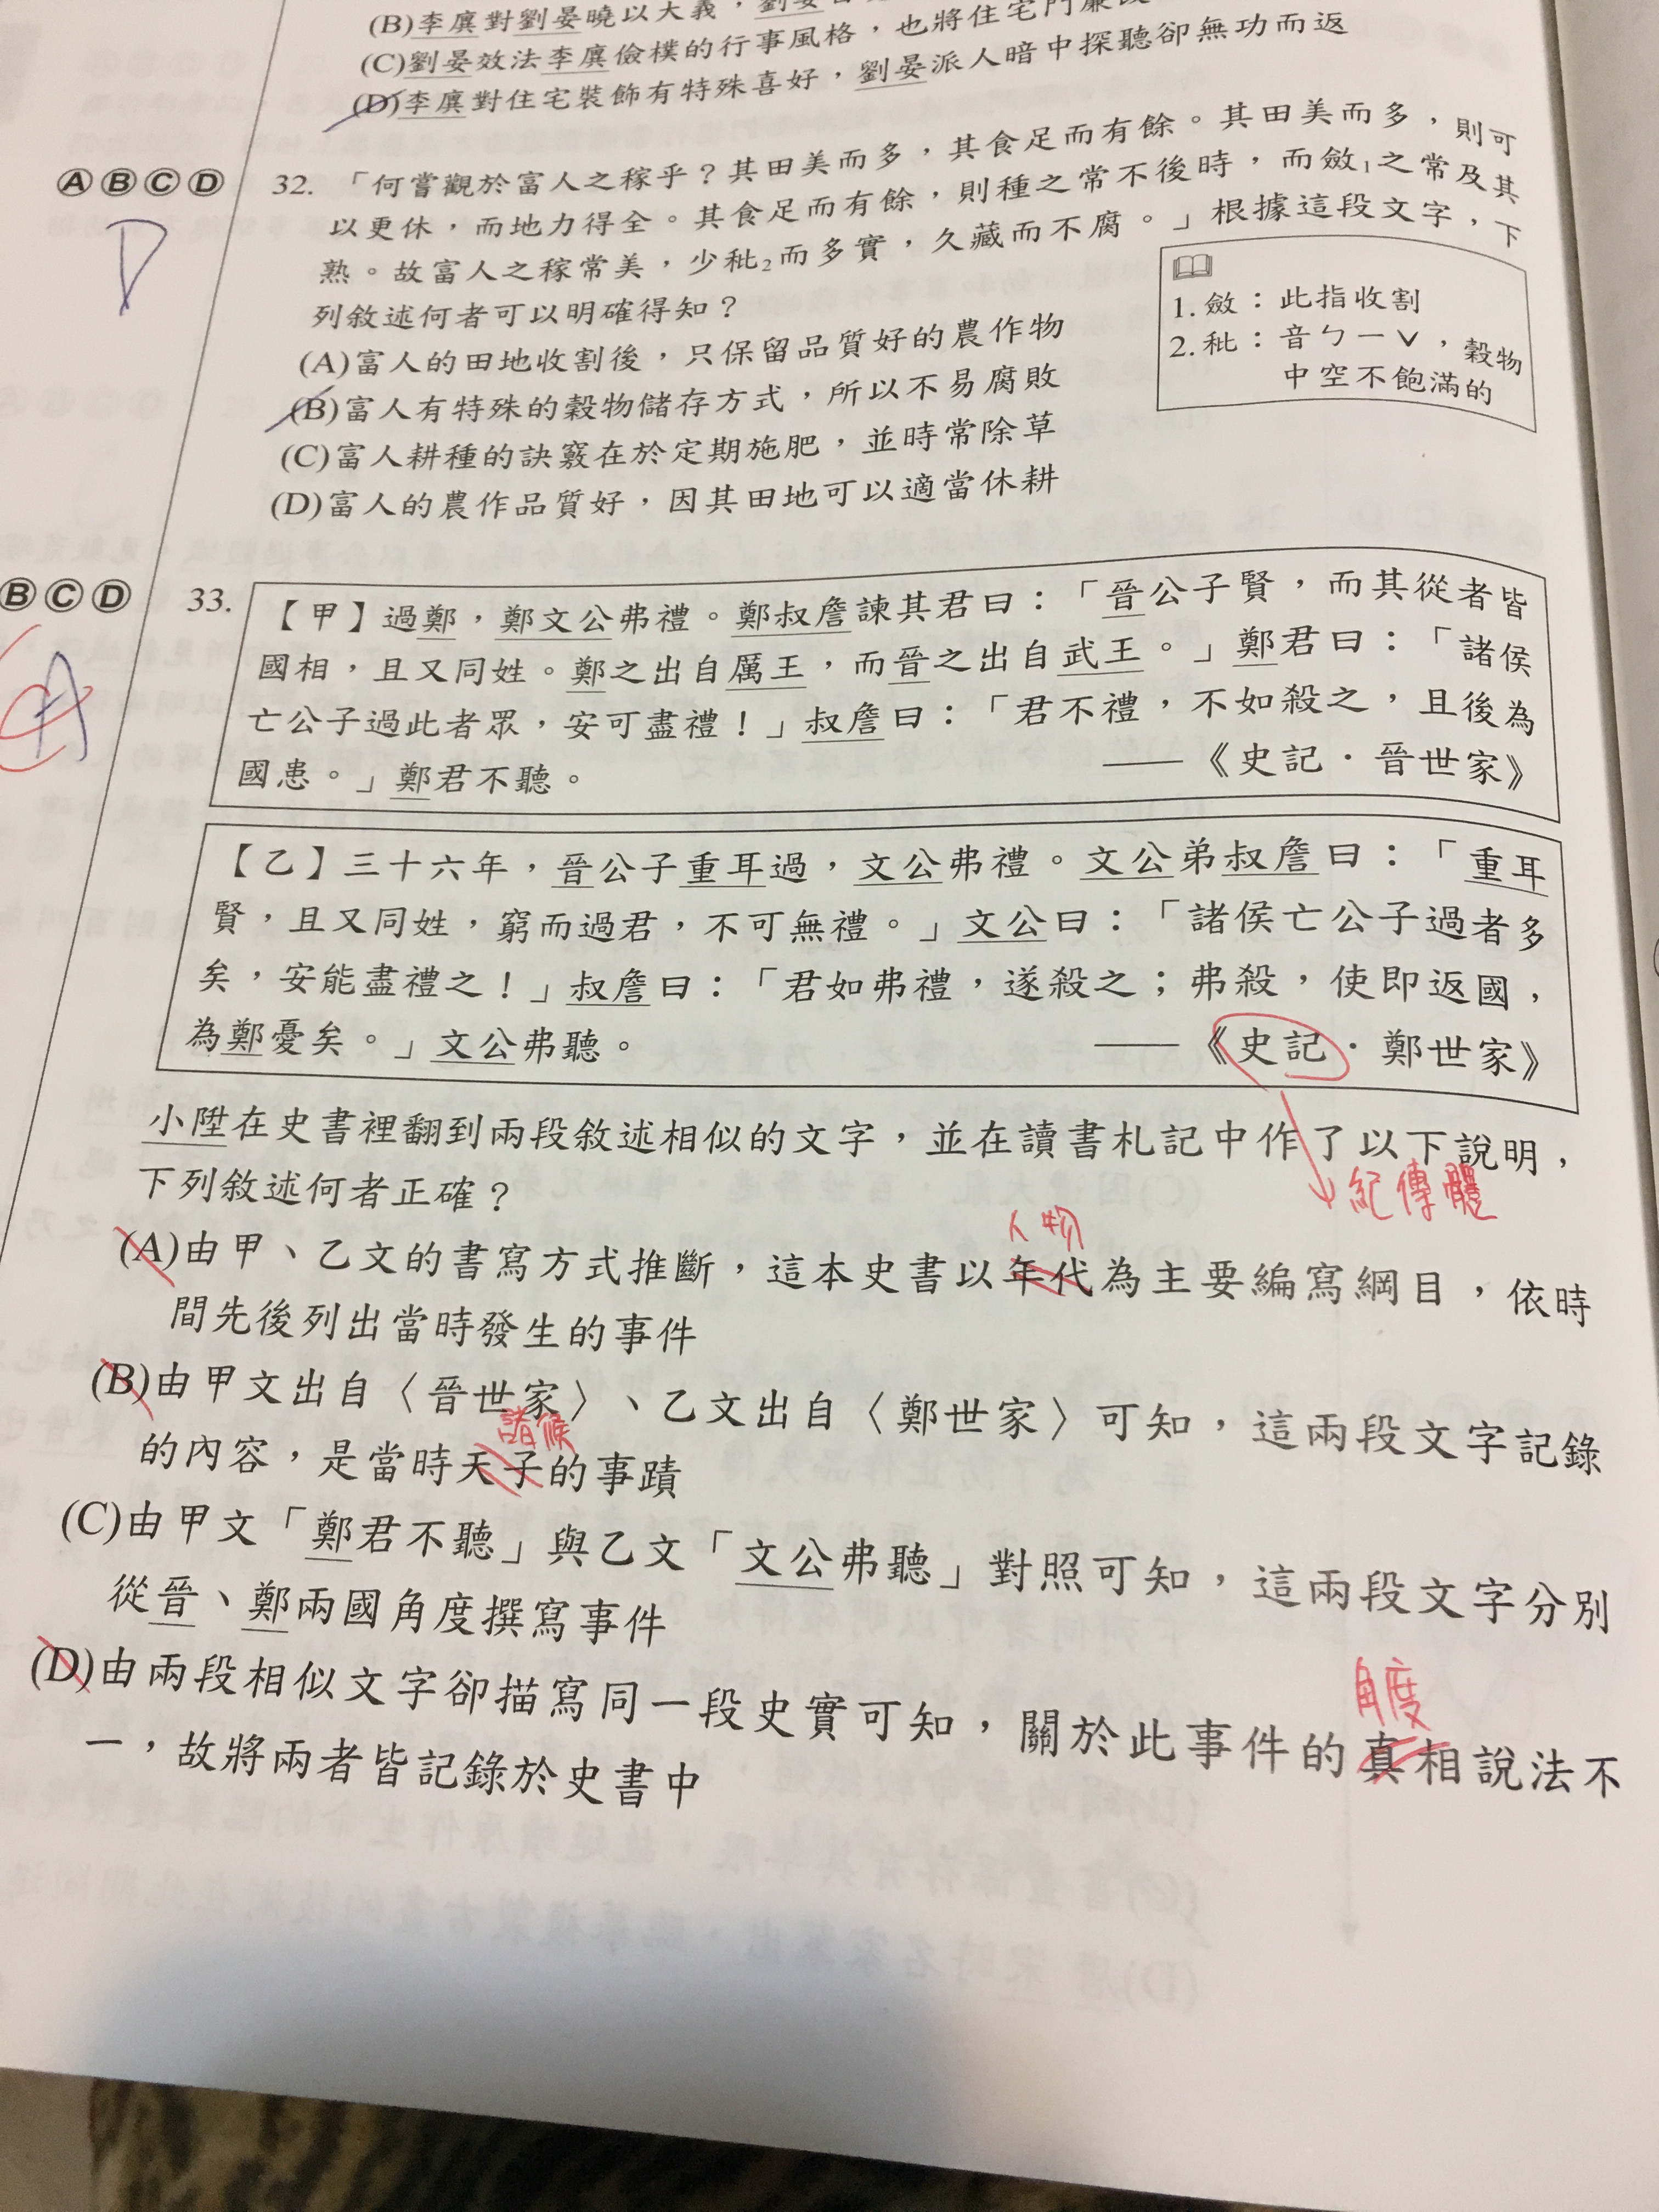 (B)李廙對劉晏曉以大義，劉晏
(C)劉晏效法李廙儉樸的行事風格，也將住宅門簾
(D)李廙對住宅裝飾有特殊喜好，劉晏派人暗中探聽卻無功而返
ⒶⒷⒸⒹ
D
32. 「何嘗觀於富人之稼乎？其田美而多，其食足而有餘。其田美而多，則可
以更休，而地力得全。其食足而有餘，則種之常不後時，而斂1之常及其
熟。故富人之稼常美，少秕2而多實，久藏而不腐。」根據這段文字，下
列敘述何者可以明確得知？
(A)富人的田地收割後，只保留品質好的農作物
(B)富人有特殊的穀物儲存方式，所以不易腐敗
(C)富人耕種的訣竅在於定期施肥，並時常除草
(D)富人的農作品質好，因其田地可以適當休耕
1. 斂：此指收割
2. 秕：音ㄅㄧˇ，穀物
中空不飽滿的
ⒷⒸⒹ
A
33.
【甲】過鄭，鄭文公弗禮。鄭叔詹諫其君曰：「晉公子賢，而其從者皆
國相，且又同姓。鄭之出自厲王，而晉之出自武王。」鄭君曰：「諸侯
亡公子過此者眾，安可盡禮！」叔詹曰：「君不禮，不如殺之，且後為
國患。」鄭君不聽。
——《史記．晉世家》
【乙】三十六年，晉公子重耳過，文公弗禮。文公弟叔詹曰：「重耳
賢，且又同姓，窮而過君，不可無禮。」文公曰：「諸侯亡公子過者多
矣，安能盡禮之！」叔詹曰：「君如弗禮，遂殺之；弗殺，使即返國，
為鄭憂矣。」文公弗聽。
——《史記．鄭世家》
小陞在史書裡翻到兩段敘述相似的文字，並在讀書札記中作了以下說明，
下列敘述何者正確？
紀傳體
人物
(A)由甲、乙文的書寫方式推斷，這本史書以年代為主要編寫綱目，依時
間先後列出當時發生的事件
(B)由甲文出自〈晉世家〉、乙文出自〈鄭世家〉可知，這兩段文字記錄
諸候
的內容，是當時天子的事蹟
(C)由甲文「鄭君不聽」與乙文「文公弗聽」對照可知，這兩段文字分別
從晉、鄭兩國角度撰寫事件
角度
(D)由兩段相似文字卻描寫同一段史實可知，關於此事件的真相說法不
一，故將兩者皆記錄於史書中